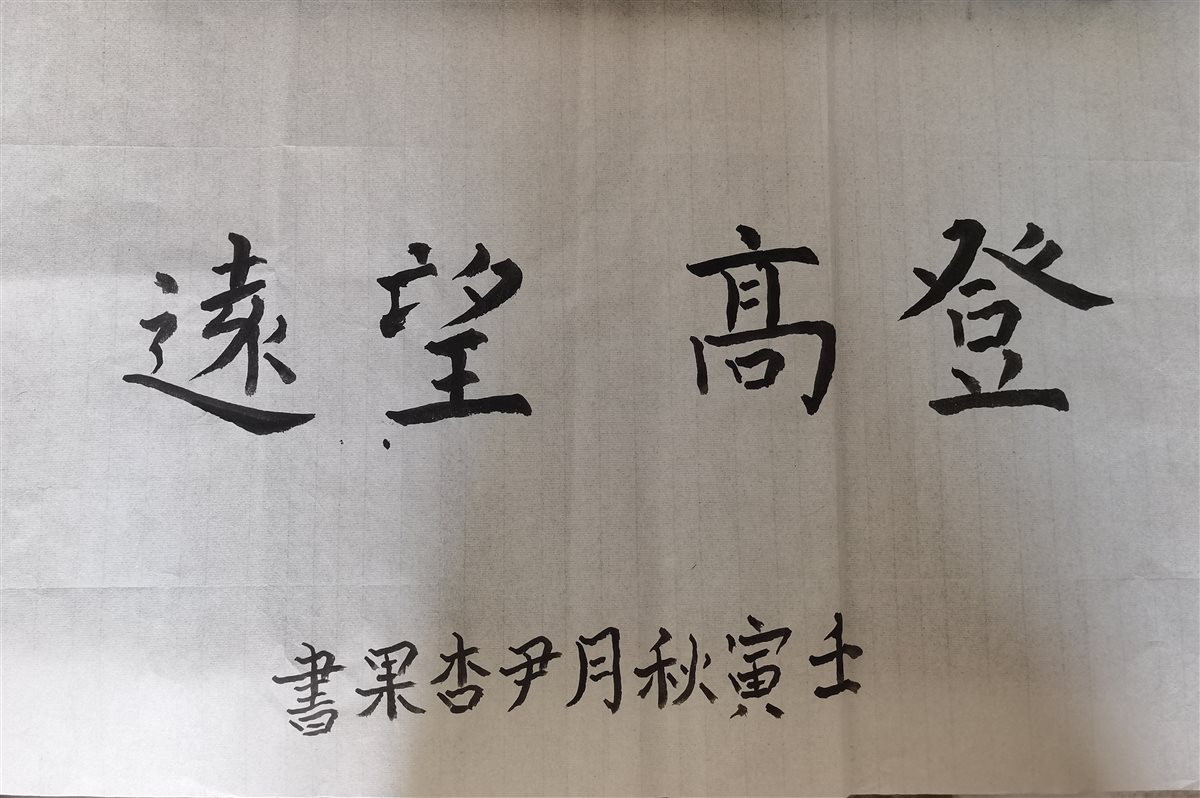 登髙望遠
壬寅秋月尹杏果書